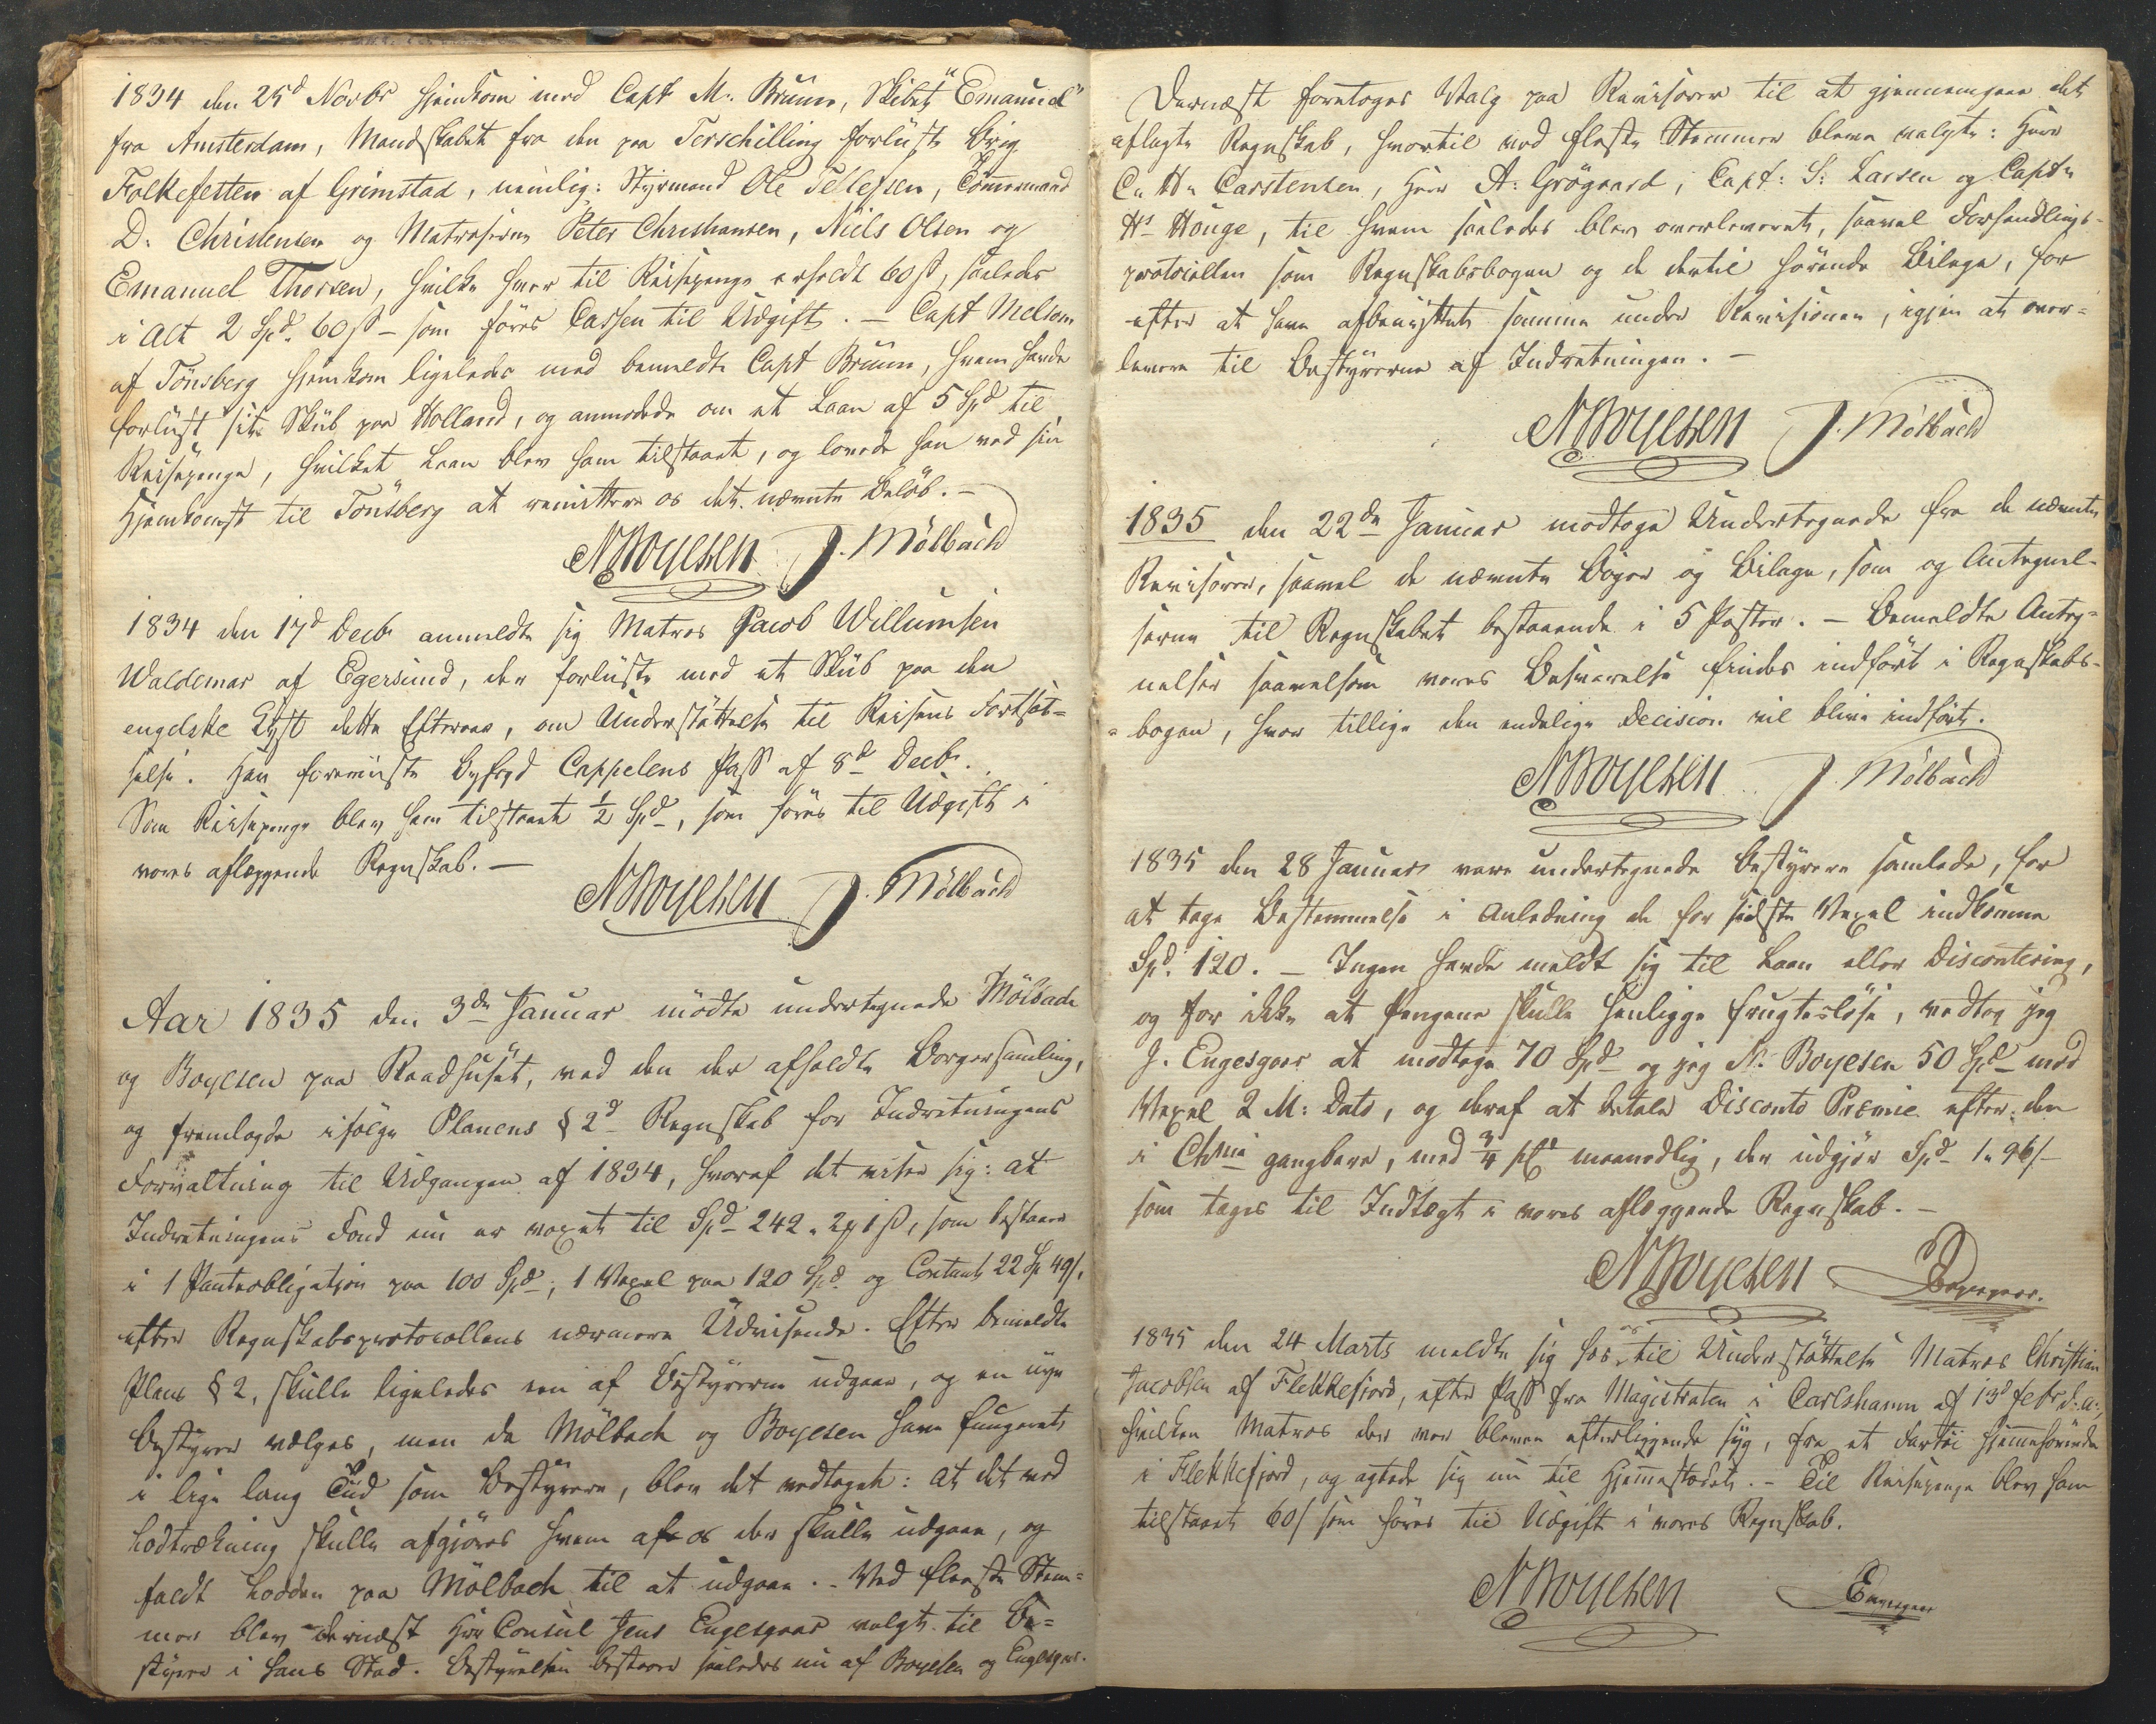 1834 den 25d Novbr hjemkom med Capt M. Bruun, Skibet "Emanuel"
fra Amsterdam, Mandskabet fra den paa Terschilling forliiste Brig
Folkefetten af Grimstad, nemlig: Styrmand Ole Tellefsen, Tömmermand
D. Christensen og Matroserne Peter Christiansen, Niels Olsen og
Emanuel Thorsen, hvilke hver til Reisepenge erholdt 60 ß, saaledes
i Alt 2 Spd. 60 ß – som föres Cassen til Udgift. – Capt Melsom
af Tönsberg hjemkom ligeledes med bemeldte Capt Bruun, hvem havde
forliist sit Skib paa Holland, og anmodede om et Laan af 5 Spd til
Reisepenge, hvilket Laan blev ham tilstaaet, og lovede han ved sin
Hjemkomst til Tönsberg at remittere os det nævnte Belöb. –
N Boyesen J. Mölbach
1834 den 17d Decbr anmeldte sig Matros Jacob Willumsen
Waldemar af Egersund, der forliiste med et Skib paa den
engelske Kyst dette Efteraar, om Understöttelse til Reisens Fortsæt=
telse. Han foreviiste Byfogd Cappelens Pass af 8d Decbr.
Som Reisepenge blev ham tilstaaet ½ Spd, som föres til Udgift i
vores aflæggende Regnskab. –
N Boyesen J. Mölbach
Aar 1835 den 3de Januar mödte undertegnede Mölbach
og Boyesen paa Raadhuset, ved den der afholdte Borgersamling,
og fremlagde ifölge Planens § 2d Regnskab for Indretningens
Forvaltning til Udgangen af 1834, hvoraf det viser sig: at
Indretningens Fond nu er voxet til Spd 242. 2 1 ß, som bestaaer
i 1 Panteobligation paa 100 Spd, 1 Vexel paa 120 Spd og Contant 22 Sp 49/,
efter Regnskabsprotocollens nærmere Udvisende. Efter bemeldte
Plans § 2, skulle ligeledes een af Bestyrerne udgaae, og en nye
Bestyrer vælges, men da Mölbach og Boyesen have fungeret
i lige lang Tiid som Bestyrere, blev det vedtaget: at det ved
Lodtrækning skulle afgjöres hvem af os der skulle udgaae, og
faldt Lodden paa Mölbach til at udgaae. – Ved fleeste Stem=
mer blev dernæst Hr Consul Jens Engesgaar valgt til Be=
styrer i hans Sted. Bestyrelsen bestaaer saaledes nu af Boyesen og Engesgaar.
Dernæst foretoges Valg paa Revisorer til at gjennemgaae det
aflagte Regnskab, hvortil ved fleste Stemmer bleve valgte: Herr
C. H. Carstensen, Herr A: Grögaard, Capt: S: Larsen og Captn
Hs Houge, til hvem saaledes blev overleveret, saavel Forhandlings-
protocollen som Regnskabsbogen og de dertil hörende Bilage, for
efter at have afbenyttet samme under Revisionen, igjen at over=
levere til Bestyrerne af Indretningen. –
N Boyesen J. Mölbach
1835 den 22de Januar modtoge Undertegnede fra de nævnte
Revisorer, saavel de nævnte Böger og Bilage, som og Antegnel-
serne til Regnskabet bestaaende i 5 Poster. – Bemeldte Anteg=
nelser saavelsom vores Besvarelse findes indfört i Regnskabs-
=bogen, hvor tillige den endelige Decision vil blive indfört.
N Boyesen J. Mölbach
1835 den 28 Januar vare undertegnede Bestyrere samlede, for
at tage Bestemmelse i Anledning de for sidste Vexel indkomne
Spd. 120. – Ingen havde meldt sig til Laan eller Discontering,
og for ikke at Pengene skulle henligge frugteslöse, vedtog jeg
J. Engesgaar at modtage 70 Spd og jeg N. Boyesen 50 Spd mod
Vexel 2 M: Dato, og deraf at betale Disconto Præmie efter den
i Chnia gangbare, med ¾ pCt maanedlig, der udgjör Spd 1" 96/–
som tages til Indtægt i vores aflæggende Regnskab. –
N Boyesen Engesgaar.
1835 den 24 Marts meldte sig hos os til Understöttelse Matros Christian
Jacobsen af Flekkefjord, efter Pass fra Magistraten i Carlshavn af 13d Febr d: a:,
hvilken Matros der var bleven efterliggende syg, fra et Fartöi hjemmehörende
i Flekkefjord, og agtede sig nu til Hjemmestedet. – Til Reisepenge blev ham
tilstaaet 60/ som föres til Udgift i vores Regnskab.
N Boyesen Engesgaar